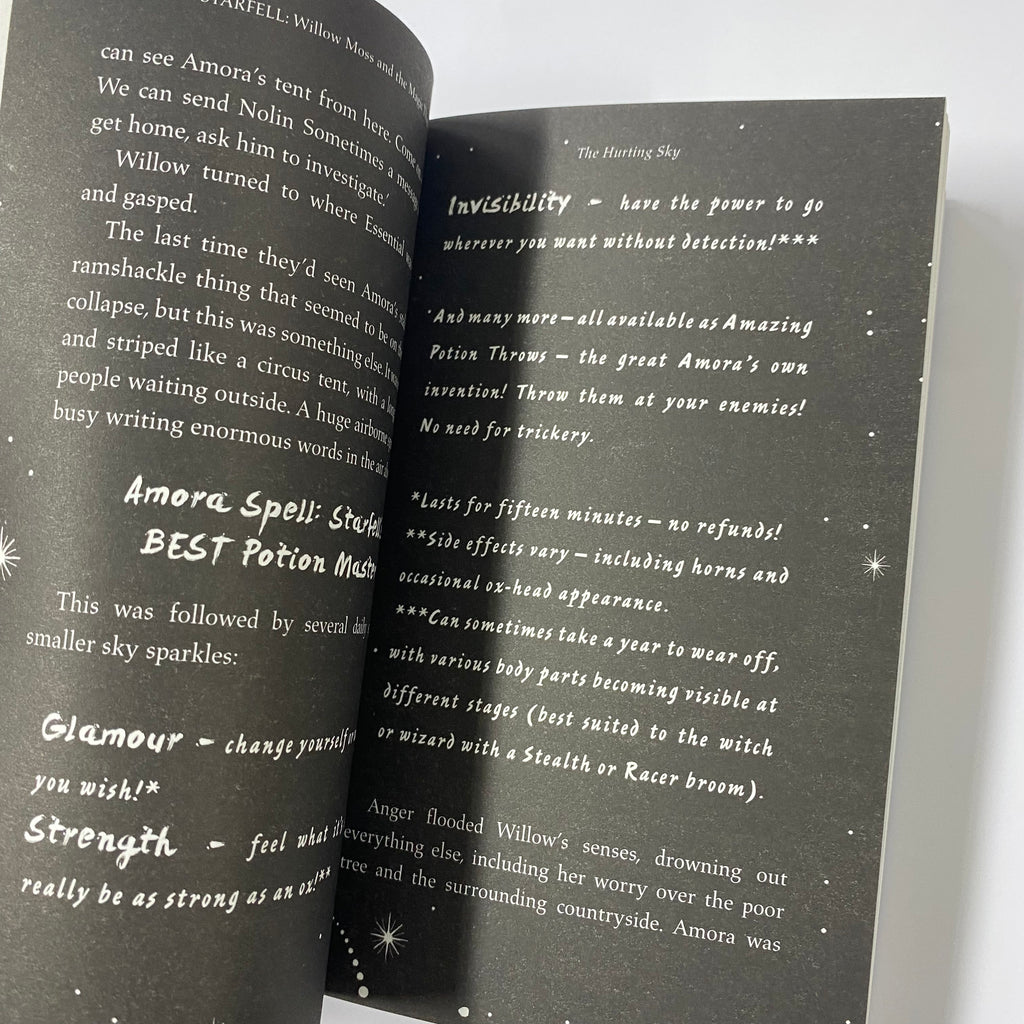 STARFELL: Willow Moss and the Magic
can see Amora's tent from here. Come
We can send Nolin Sometimes a message
get home, ask him to investigate.'
Willow turned to where Essential
and gasped.
The last time they'd seen Amora's
ramshackle thing that seemed to be on
collapse, but this was something else. It was
and striped like a circus tent, with a
people waiting outside. A huge airborne
busy writing enormous words in the air
Amora Spell: Starfell
BEST Potion
This was followed by several
smaller sky sparkles:
Glamour – change yourself
you wish!*
Strength – feel what it's
really be as strong as an ox!**
The Hurting Sky
Invisibility – have the power to go
wherever you want without detection!***
And many more – all available as Amazing
Potion Throws – the great Amora's own
invention! Throw them at your enemies!
No need for trickery.
*Lasts for fifteen minutes – no refunds!
**Side effects vary – including horns and
occasional ox-head appearance.
***Can sometimes take a year to wear off,
with various body parts becoming visible at
different stages (best suited to the witch
or wizard with a Stealth or Racer broom).
Anger flooded Willow's senses, drowning out
everything else, including her worry over the poor
tree and the surrounding countryside. Amora was